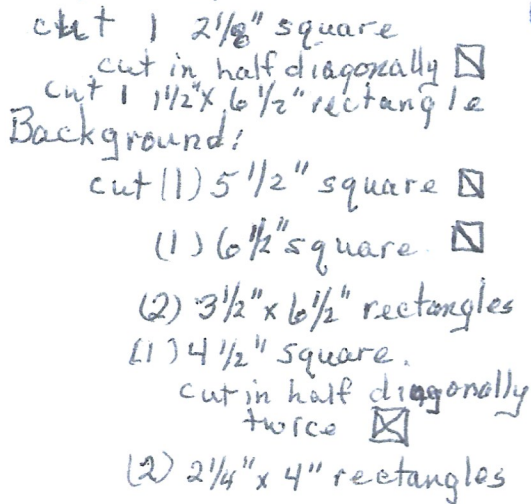 cut 1 2 1/8" square
cut in half diagonally
cut 1 1 1/2" x 6 1/2" rectangle
Background:
cut (1) 5 1/2" square
(1) 6 1/2" square
(2) 3 1/2" x 6 1/2" rectangles
(1) 4 1/2" square.
cut in half diagonally
twice
(2) 2 1/4" x 4" rectangles